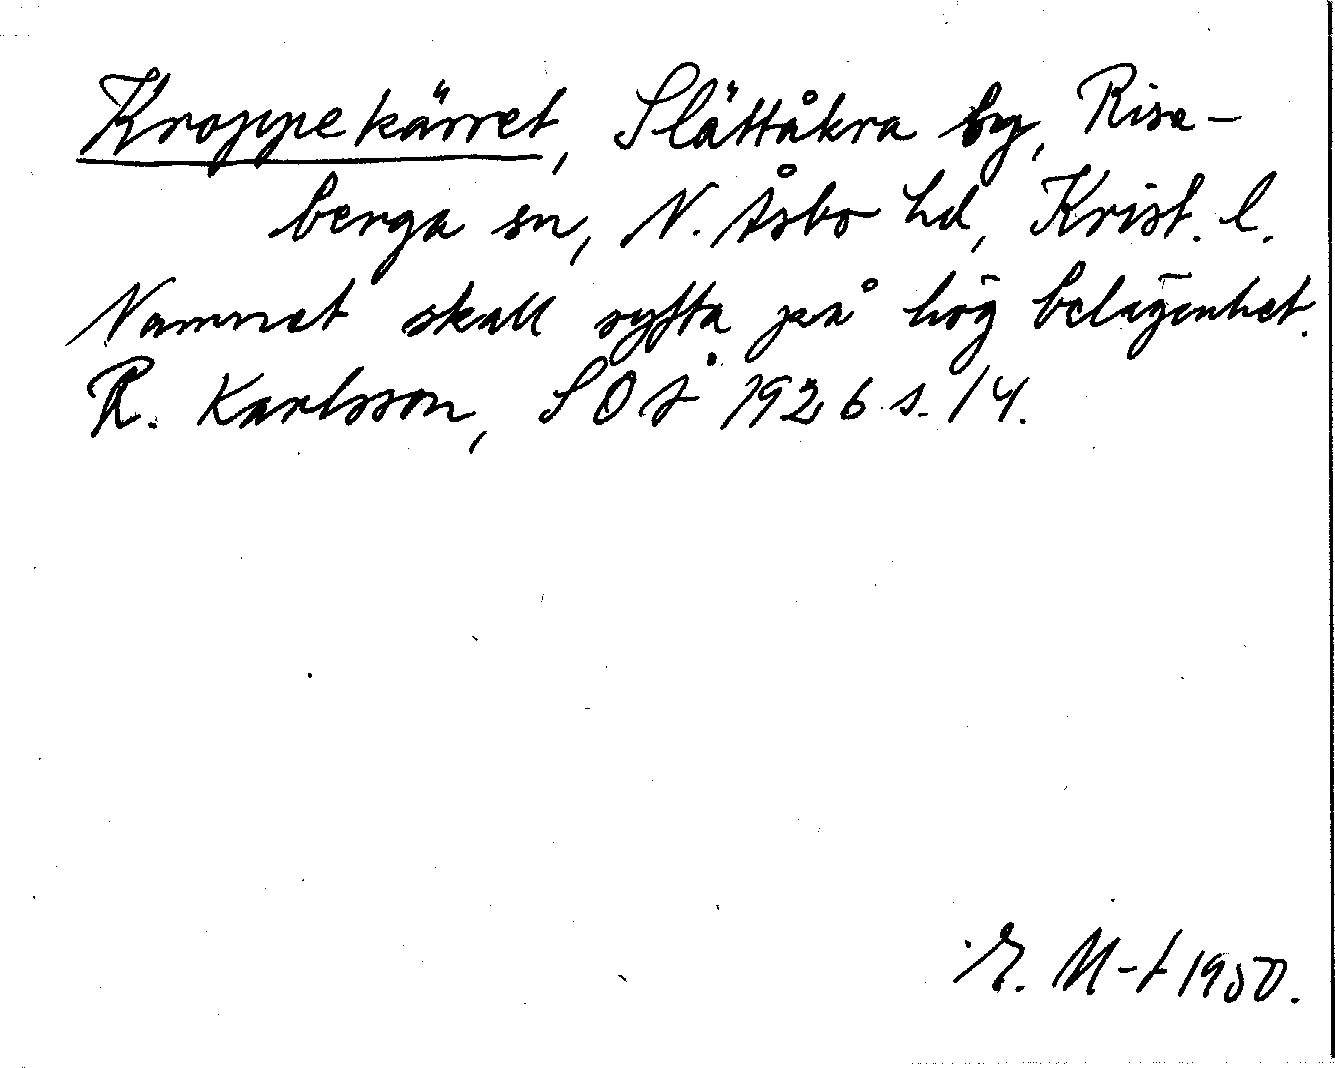 Kroppekärret, Slättåkra by, Rise-
berga sn, N. Åsbo hd, Krist. l.
Namnet skall syfta på hög belägenhet.
R. Karlsson, SOÅ 1926 s. 14.
E. M-t 1950.